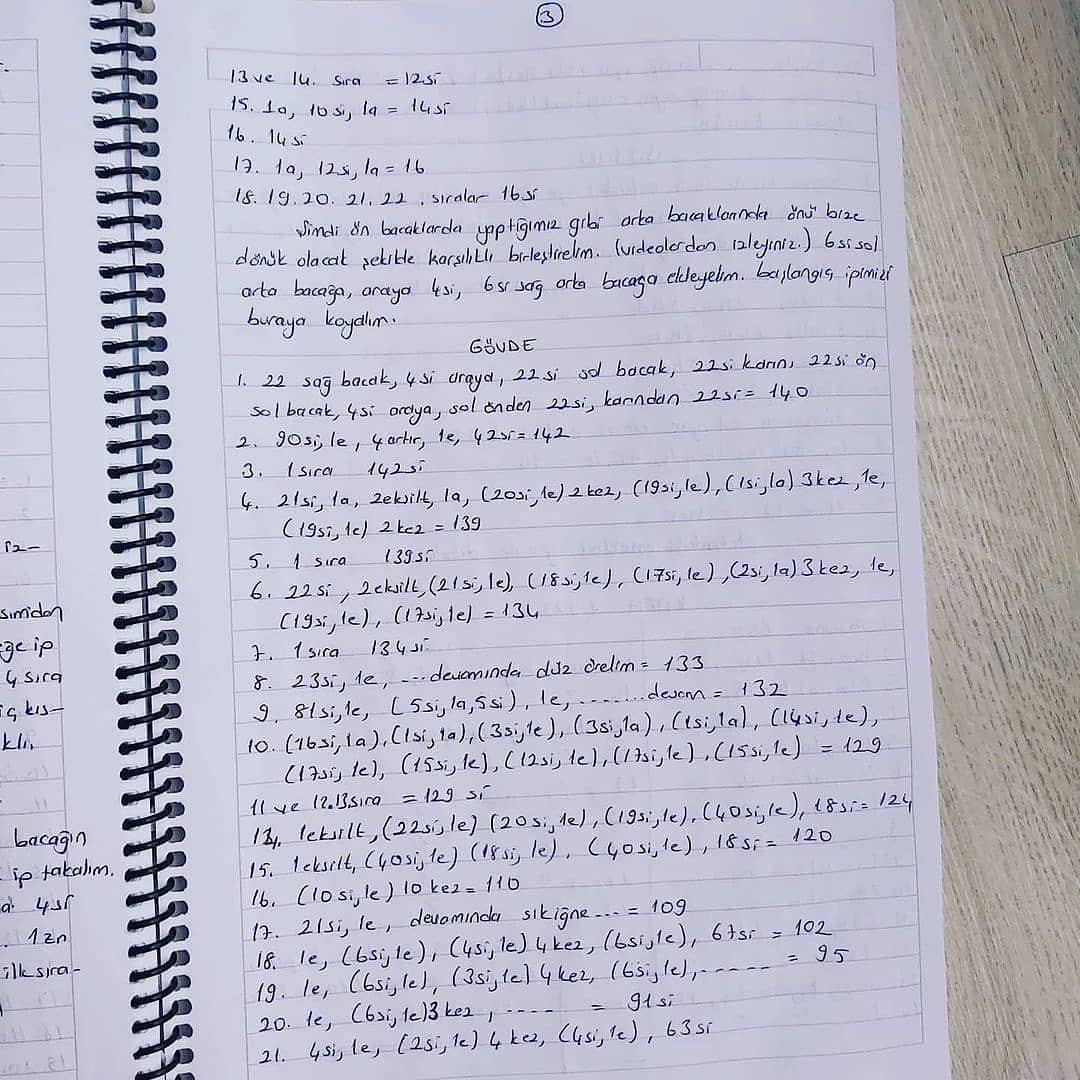 3
13 ve 14. sıra = 12si
15. 1a, 10 si, 1a = 14si
16. 14si
17. 1a, 12si, 1a = 16
18. 19. 20. 21. 22. sıralar 16si
Şimdi ön bacaklarda yaptığımız gibi arka bacaklarında önü bize
dönük olacak şekilde karşılıklı birleştirelim. (videolardan izleyiniz.) 6si sol
arka bacağa, araya 4si, 6si sağ arka bacağa ekleyelim. başlangıç ipimizi
buraya koydum.
GÖVDE
1. 22 sağ bacak, 4 si araya, 22 si sol bacak, 22si karın, 22si ön
sol bacak, 4si araya, sol önden 22si, karından 22si = 140
2. 90si, 1e, 4 artır, 1e, 42si = 142
3. 1 sıra 142si
4. 21si, 1a, 2eksilt, 1a, (20si, 1e) 2 kez, (19si, 1e), (1si, 1a) 3 kez, 1e,
(19si, 1e) 2 kez = 139
5. 1 sıra 139si
6. 22si, 2eksilt, (21si, 1e), (18si, 1e), (17si, 1e), (2si, 1a) 3 kez, 1e,
(19si, 1e), (17si, 1e) = 134
7. 1 sıra 134si
8. 23si, 1e, --- devamında düz örelim = 133
9. 81si, 1e, (5si, 1a, 5si), 1e, ....... devam = 132
10. (16si, 1a), (1si, 1a), (3si, 1e), (3si, 1a), (1si, 1a), (14si, 1e),
(17si, 1e), (15si, 1e), (12si, 1e), (17si, 1e), (15si, 1e) = 129
11 ve 12. 13 sıra = 129 si
14. 1eksilt, (22si, 1e) (20si, 1e), (19si, 1e), (40si, 1e), 18si = 124
15. 1eksilt, (40si, 1e) (18si, 1e), (40si, 1e), 18si = 120
16. (10si, 1e) 10 kez = 110
17. 21si, 1e, devamında sıkiğne --- = 109
18. 1e, (6si, 1e), (4si, 1e) 4 kez, (6si, 1e), 67si = 102
19. 1e, (6si, 1e), (3si, 1e) 4 kez, (6si, 1e), ------ = 95
20. 1e, (6si, 1e) 3 kez, ---- = 91si
21. 4si, 1e, (2si, 1e) 4 kez, (4si, 1e), 63si
sımidan
ge ip
4 sıra
iç kıs-
klı.
bacağın
ip takalım.
4si
1zn
ilk sıra-